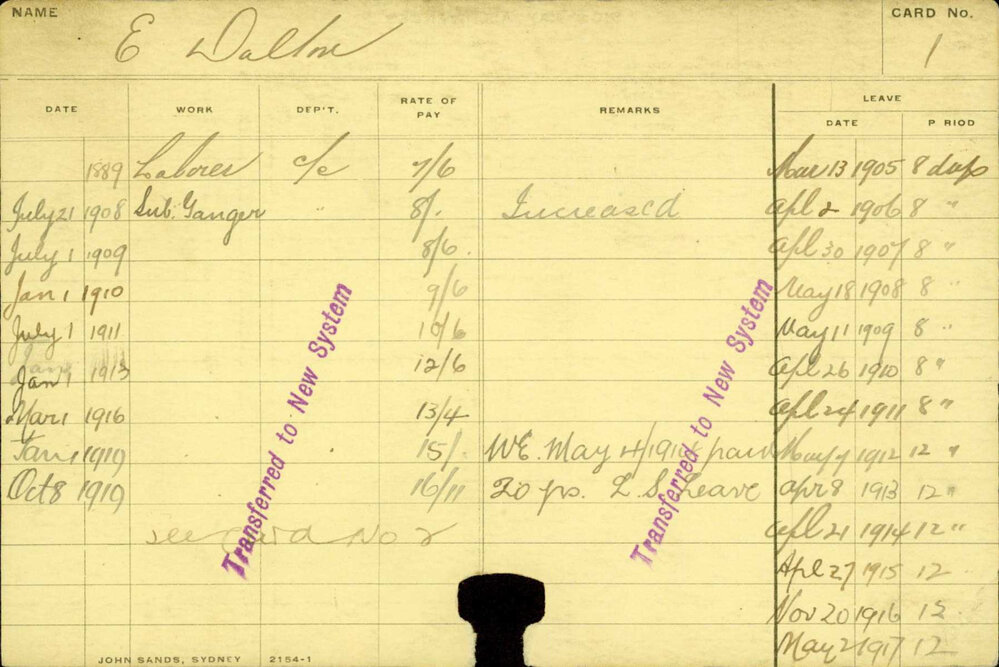 NAME E Dalton CARD No. 1
DATE WORK DEP'T. RATE OF PAY REMARKS LEAVE
DATE P RIOD
1889 Laborer c/c 7/6 Mar 13 1905 8 days
July 21 1908 Sub. Ganger " 8/. Increased Apl 2 1906 8 "
July 1 1909 8/6. Apl 30 1907 8 "
Jan 1 1910 9/6 May 18 1908 8 "
July 1 1911 10/6 May 11 1909 8 "
Jan 1 1913 12/6 Apl 26 1910 8 "
Mar 1 1916 13/4 Apl 24 1911 8 "
Jan 1 1919 15/. WE. May 1919 paid May 7 1912 12 "
Oct 8 1919 16/11 20 ps. L. S. Leave Apr 8 1913 12 "
see Card No 2 Apl 21 1914 12 "
Apl 27 1915 12
Nov 20 1916 12
May 2 1917 12
Transferred to New System
Transferred to New System
JOHN SANDS, SYDNEY 2154-1